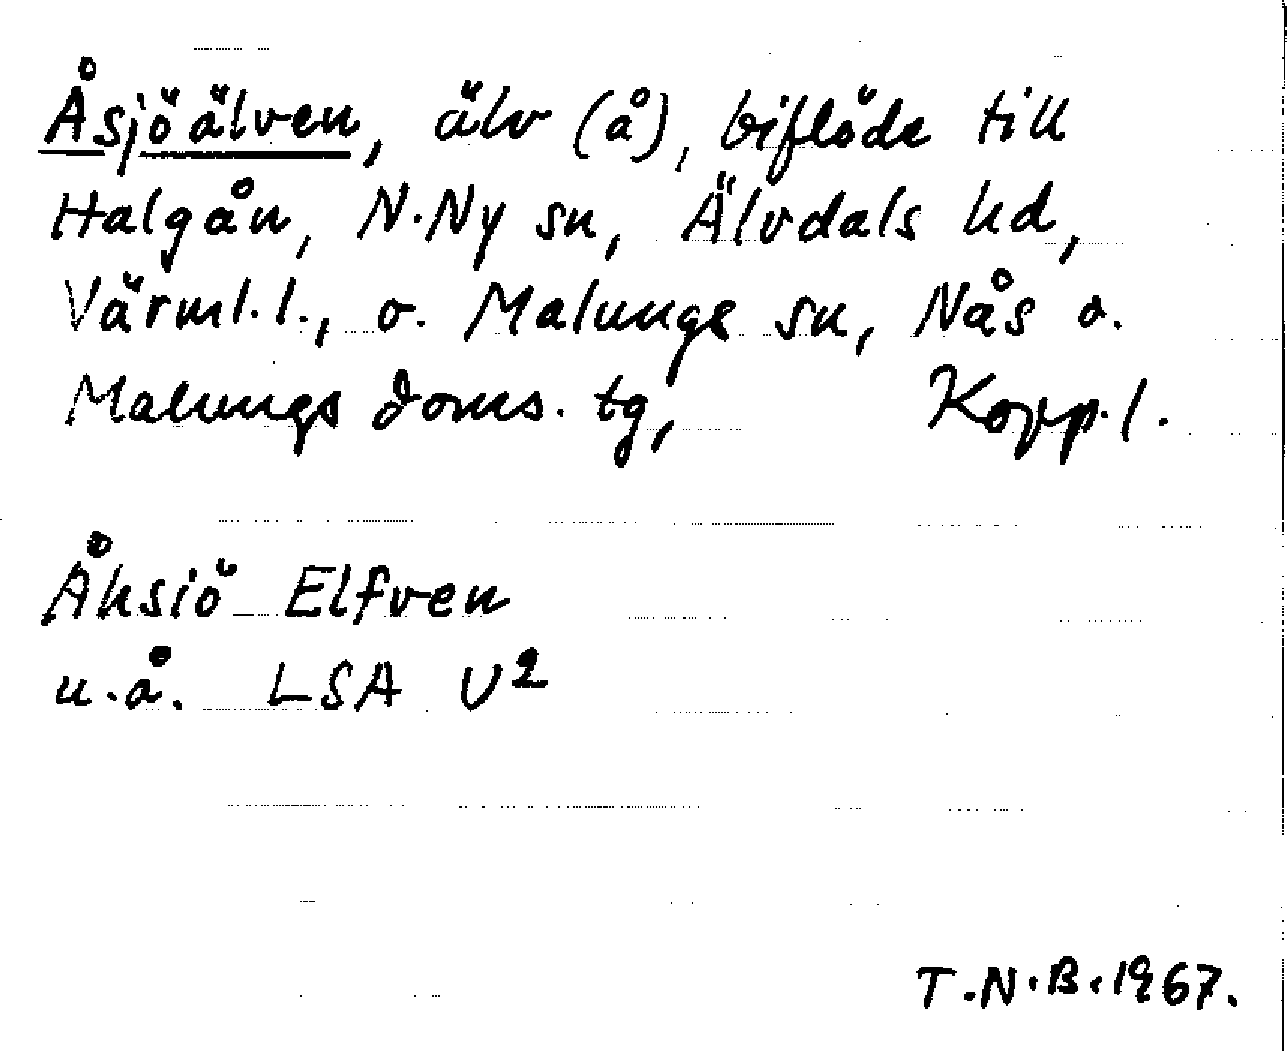 Åsjöälven, älv (å), biflöde till
Halgån, N.Ny sn, Älvdals hd,
Värml.l., o. Malungs sn, Nås o.
Malungs doms. tg, Kopp.l.
Åhsiö Elfven
u.å. LSA U²
T.N.B. 1967.